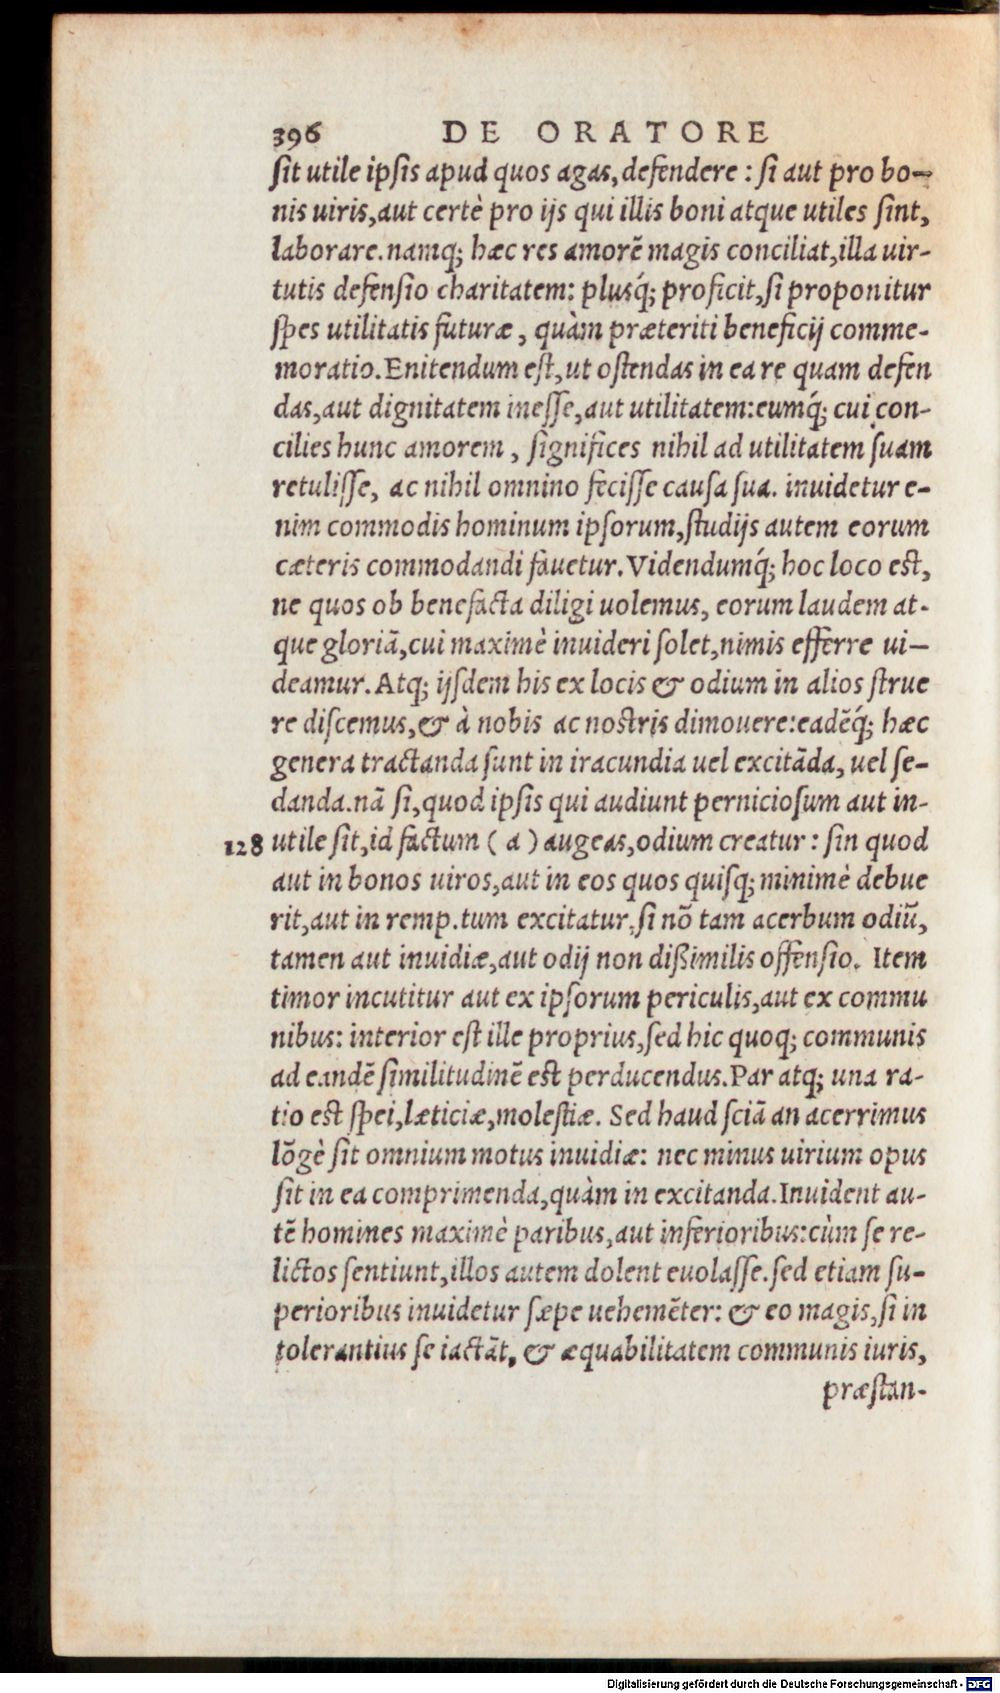 396 DE ORATORE
sit utile ipsis apud quos agas, defendere : si aut pro bo-
nis uiris, aut certè pro ijs qui illis boni atque utiles sint,
laborare. namq; hæc res amorē magis conciliat, illa uir-
tutis defensio charitatem: plusq́; proficit, si proponitur
spes utilitatis futuræ, quàm præteriti beneficij comme-
moratio. Enitendum est, ut ostendas in ea re quam defen
das, aut dignitatem inesse, aut utilitatem: eumq́; cui con-
cilies hunc amorem, significes nihil ad utilitatem suam
retulisse, ac nihil omnino fecisse causa sua. inuidetur e-
nim commodis hominum ipsorum, studijs autem eorum
cæteris commodandi fauetur. Videndumq́; hoc loco est,
ne quos ob benefacta diligi uolemus, eorum laudem at-
que gloriā, cui maximè inuideri solet, nimis efferre ui-
deamur. Atq; ijsdem his ex locis & odium in alios strue
re discemus, & à nobis ac nostris dimouere: eadēq́; hæc
genera tractanda sunt in iracundia uel excitāda, uel se-
danda. nā si, quod ipsis qui audiunt perniciosum aut in-
128 utile sit, id factum ( a ) augeas, odium creatur : sin quod
aut in bonos uiros, aut in eos quos quisq; minimè debue
rit, aut in remp. tum excitatur, si nō tam acerbum odiū,
tamen aut inuidiæ, aut odij non dißimilis offensio. Item
timor incutitur aut ex ipsorum periculis, aut ex commu
nibus: interior est ille proprius, sed hic quoq; communis
ad eandē similitudinē est perducendus. Par atq; una ra-
tio est spei, læticiæ, molestiæ. Sed haud sciā an acerrimus
lōgè sit omnium motus inuidiæ: nec minus uirium opus
sit in ea comprimenda, quàm in excitanda. Inuident au-
tē homines maximè paribus, aut inferioribus: cùm se re-
lictos sentiunt, illos autem dolent euolasse. sed etiam su-
perioribus inuidetur sæpe uehemēter: & eo magis, si in
tolerantius se iactāt, & æquabilitatem communis iuris,
præstan-
Digitalisierung gefördert durch die Deutsche Forschungsgemeinschaft - DFG